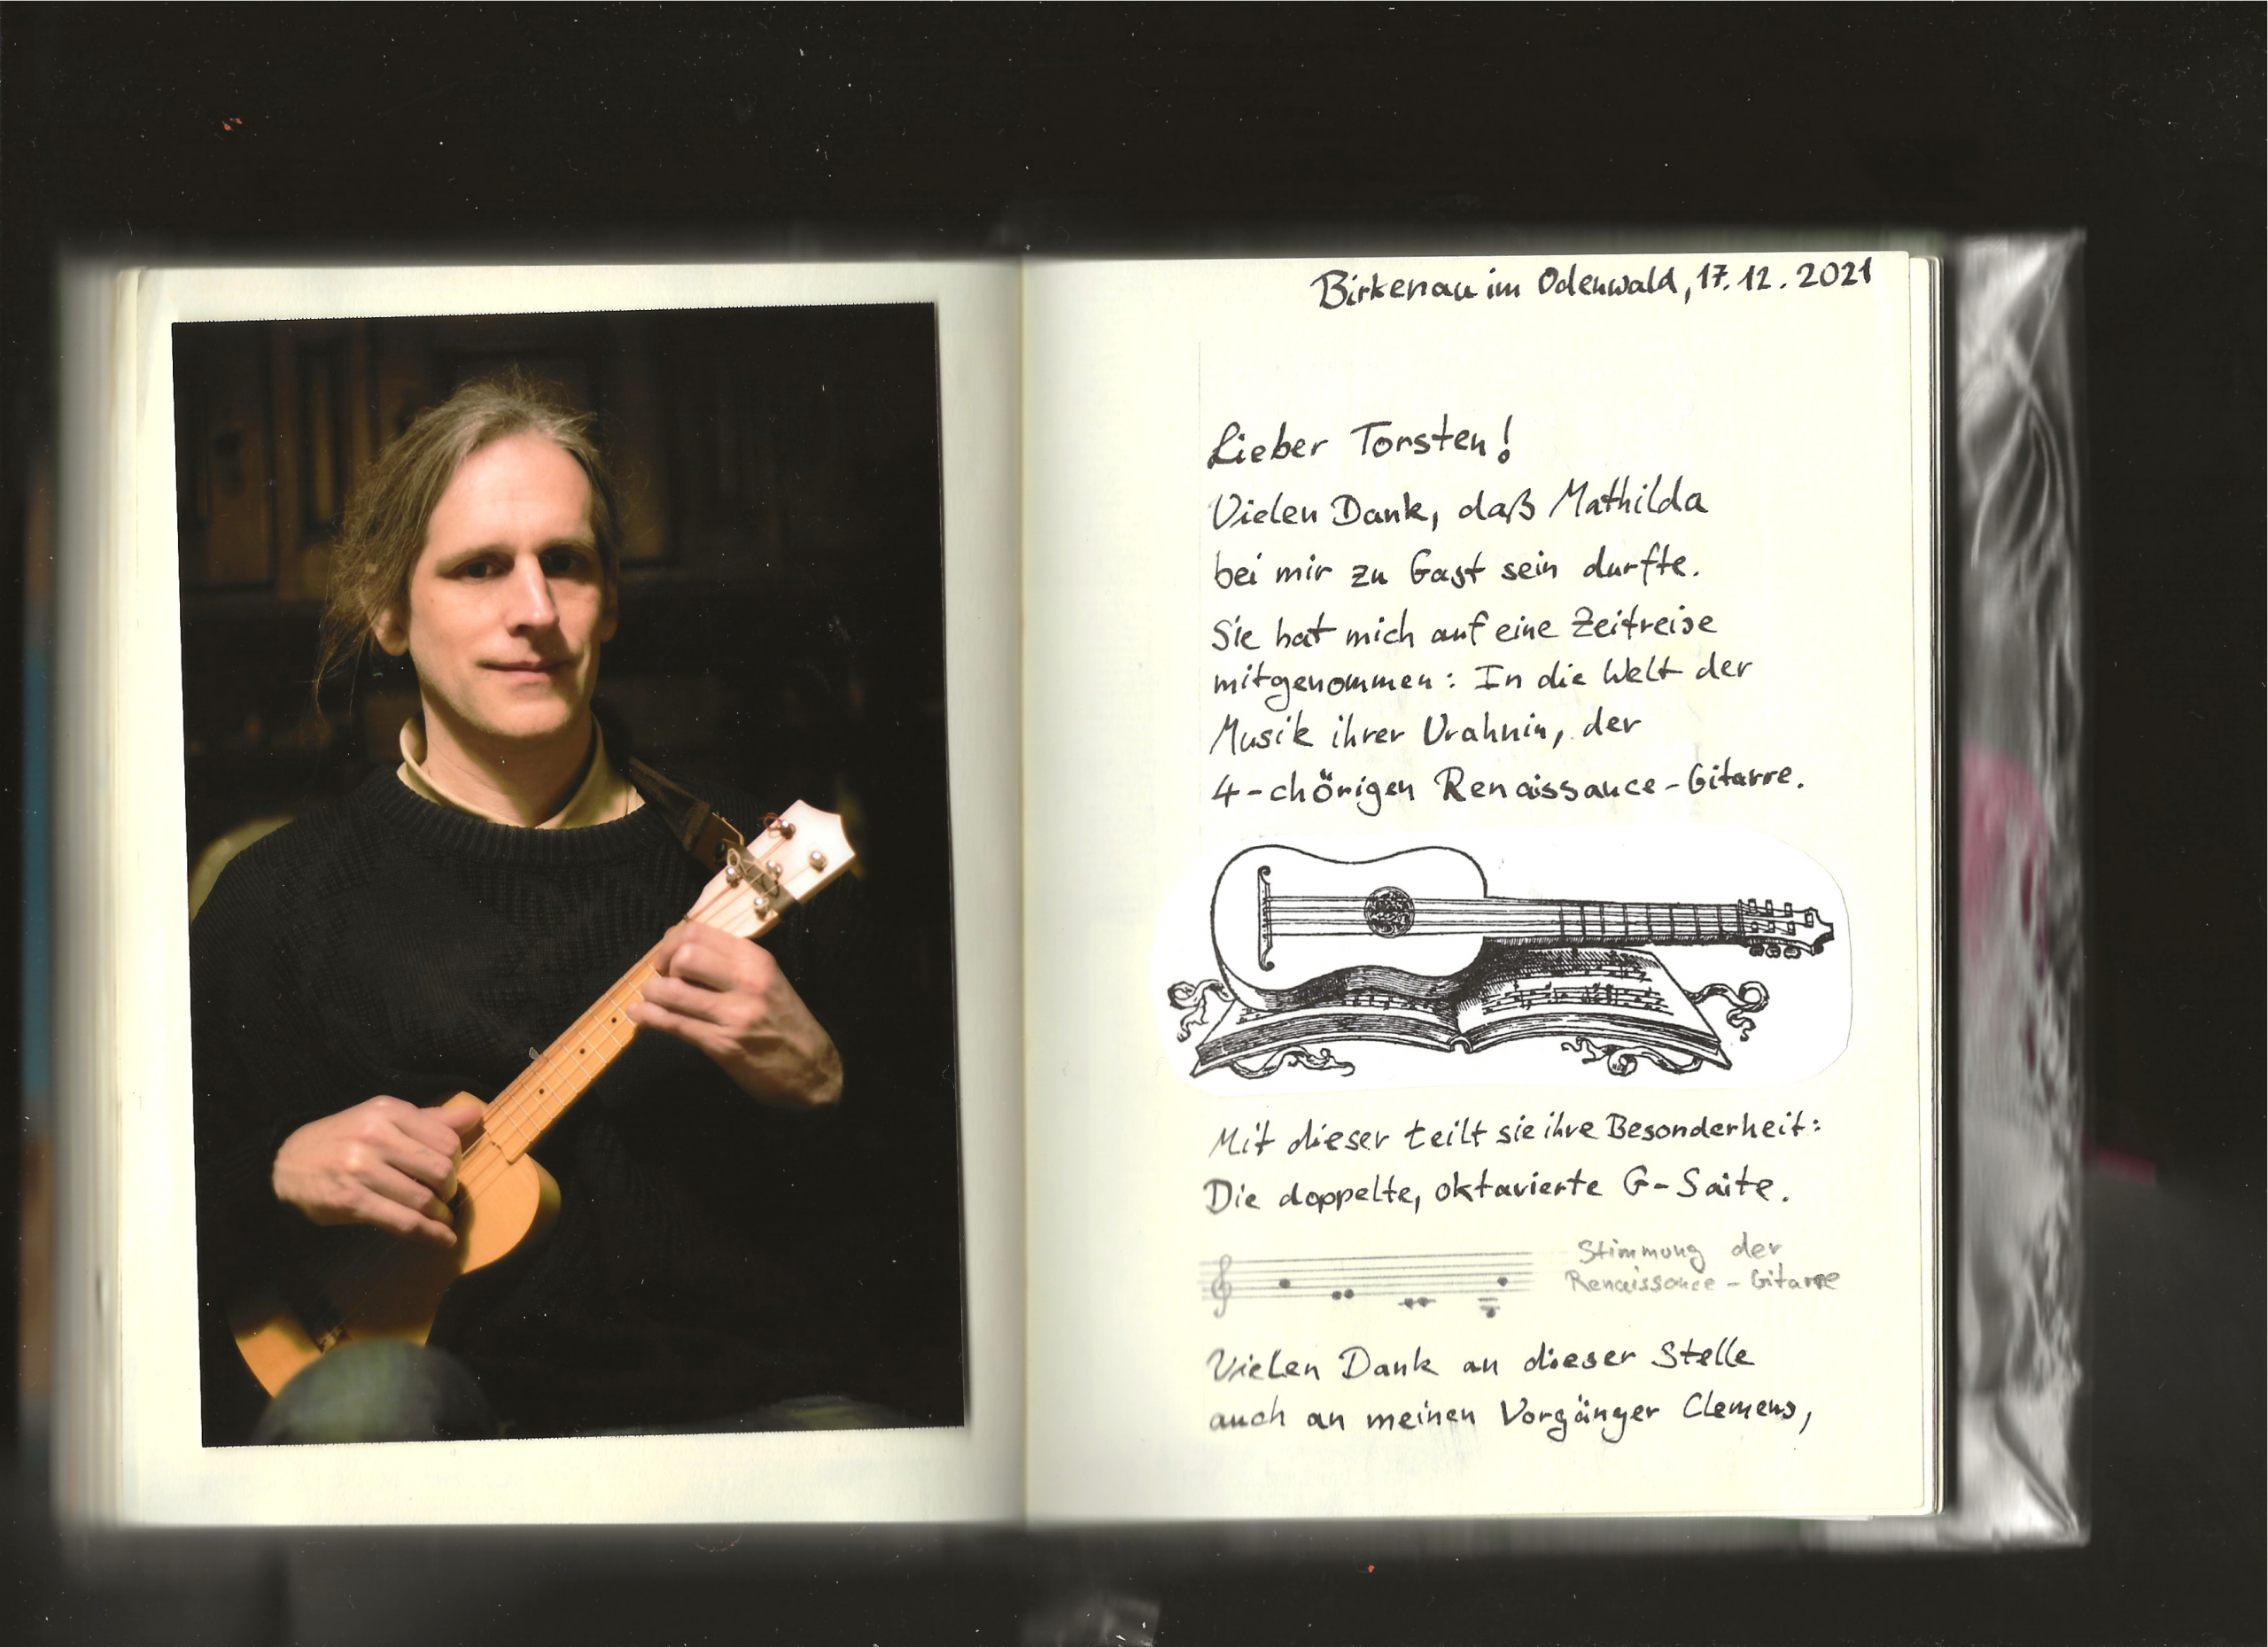 Birkenau im Odenwald, 17.12.2021
Lieber Torsten!
Vielen Dank, daß Mathilda
bei mir zu Gast sein durfte.
Sie hat mich auf eine Zeitreise
mitgenommen: In die Welt der
Musik ihrer Urahnin, der
4-chörigen Renaissance-Gitarre.
Mit dieser teilt sie ihre Besonderheit:
Die doppelte, oktavierte G-Saite.
Stimmung der
Renaissance-Gitarre
Vielen Dank an dieser Stelle
auch an meinen Vorgänger Clemens,